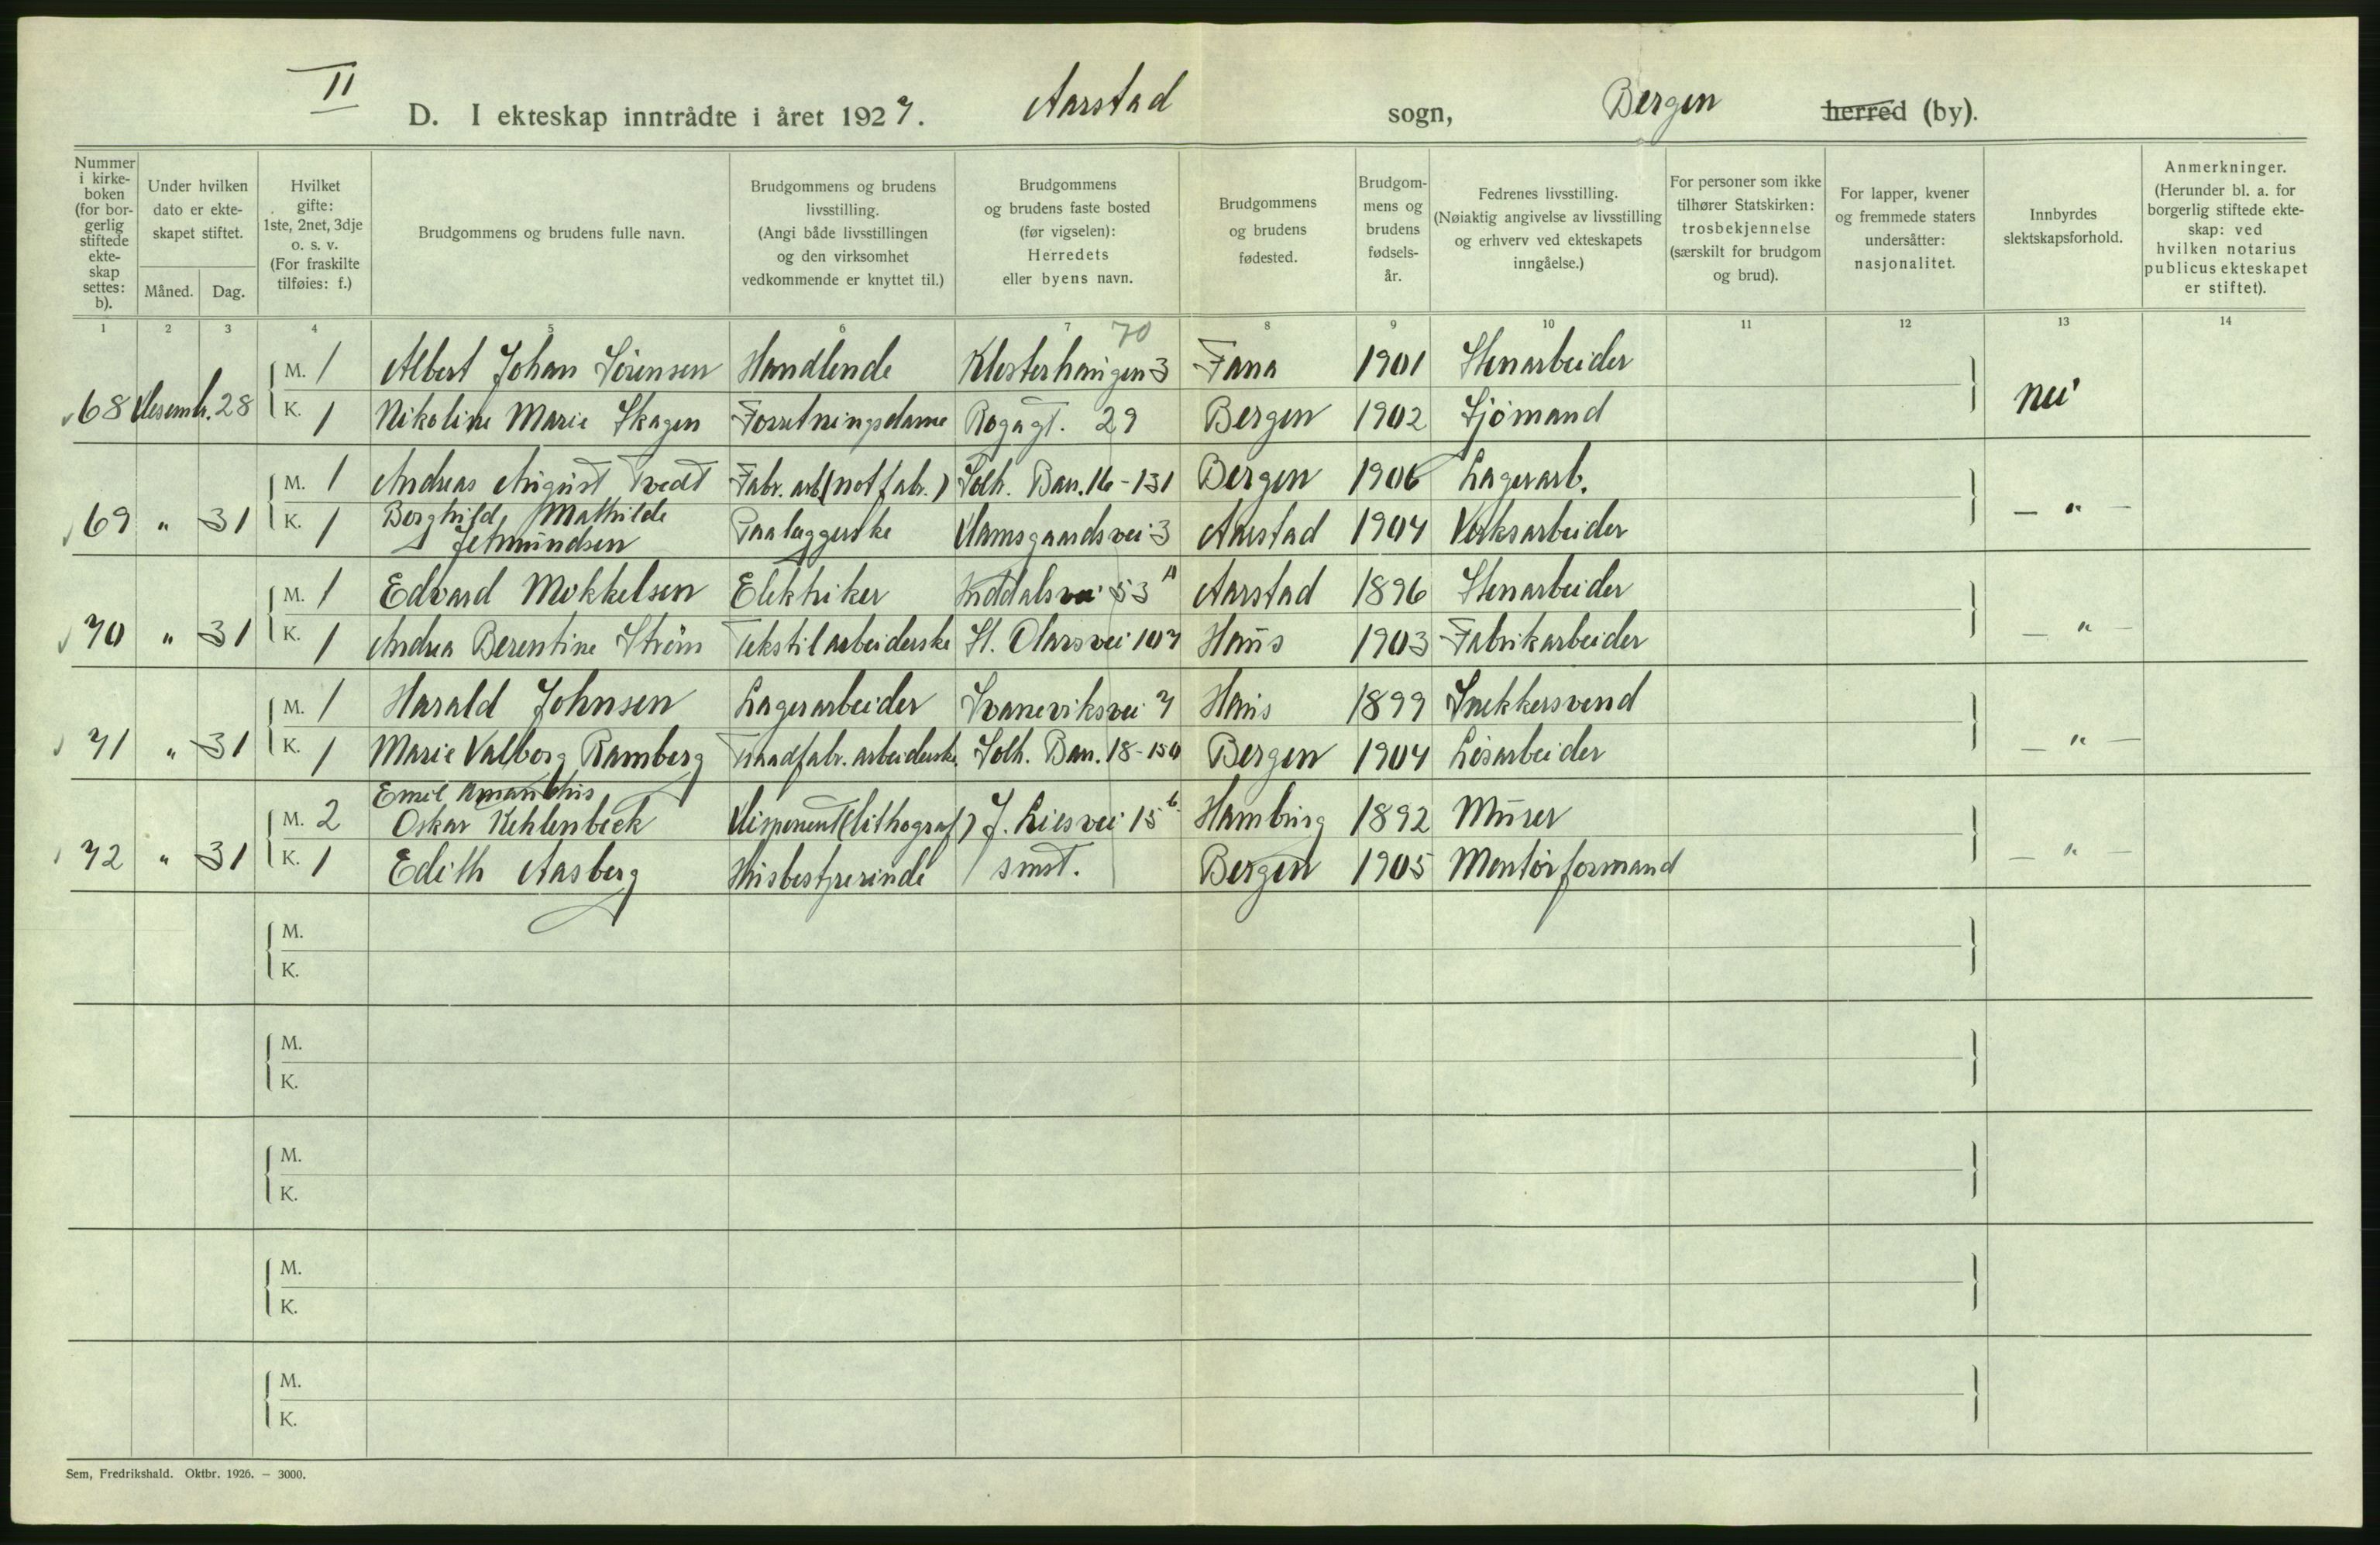 II
D. I ekteskap inntrådte i året 1927. Aarstad sogn, Bergen herred (by).
Nummer i kirke-boken (for bor-gerlig stiftede ekte-skap settes: b).
Under hvilken dato er ekte-skapet stiftet.
Måned. Dag.
Hvilket gifte: 1ste, 2net, 3dje o. s. v. (For fraskilte tilføies: f.)
Brudgommens og brudens fulle navn.
Brudgommens og brudens livsstilling. (Angi både livsstillingen og den virksomhet vedkommende er knyttet til.)
Brudgommens og brudens faste bosted (før vigselen): Herredets eller byens navn.
Brudgommens og brudens fødested.
Brudgom-mens og brudens fødsels-år.
Fedrenes livsstilling. (Nøiaktig angivelse av livsstilling og erhverv ved ekteskapets inngåelse.)
For personer som ikke tilhører Statskirken: trosbekjennelse (særskilt for brudgom og brud).
For lapper, kvener og fremmede staters undersåtter: nasjonalitet.
Innbyrdes slektskapsforhold.
Anmerkninger. (Herunder bl. a. for borgerlig stiftede ekte-skap: ved hvilken notarius publicus ekteskapet er stiftet).
1 2 3 4 5 6 7 8 9 10 11 12 13 14
70
68 Desembr. 28 M. 1 Albert Johan Sörensen Handlende Klosterhaugen 3 Fana 1901 Stenarbeider nei
K. 1 Nikoline Marie Skagen Forretningsdame Rogagt. 29 Bergen 1902 Sjömand
69 " 31 M. 1 Andreas August Tvedt Fabr. arb (notfabr.) Solh. Bar. 16-131 Bergen 1906 Lagerarb. — " —
K. 1 Borghild Mathilde Jetmundsen Paalæggerske Damsgaardsvei 3 Aarstad 1904 Verksarbeider
70 " 31 M. 1 Edvard Mikkelsen Elektriker Inddalsvei 53 A Aarstad 1896 Stenarbeider — " —
K. 1 Andrea Berentine Ström Tekstilarbeiderske St. Olavsvei 107 Haus 1903 Fabrikarbeider
71 " 31 M. 1 Harald Johnsen Lagerarbeider Svaneviksvei 7 Haus 1899 Snekkersvend — " —
K. 1 Marie Valborg Ramberg Traadfabr. arbeiderske Solh. Bar. 18-150 Bergen 1904 Lösarbeider
72 " 31 M. 2 Emil Amandus Oskar Kehlenbeck Disponent (lithograf) J. Liesvei 15 b. Hamburg 1892 Murer — " —
K. 1 Edith Aasberg Husbestyrerinde smst. Bergen 1905 Montörformand
M.
K.
M.
K.
M.
K.
M.
K.
M.
K.
Sem, Fredrikshald. Oktbr. 1926. – 3000.